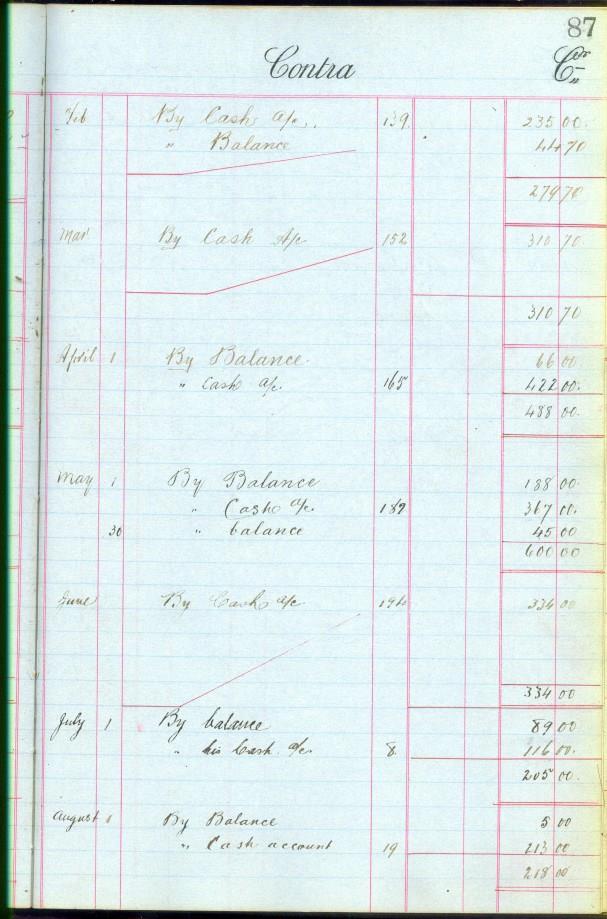 87
Contra Cr
Feb By Cash a/c. 139. 235 00.
" Balance 44 70
279 70
Mar By Cash A/c 152 310 70
310 70
April 1 By Balance. 66 00
" Cash a/c. 165 422 00.
488 00.
May 1 By Balance 188 00
" Cash a/c. 182 367 00.
30 " balance 45 00
600 00
June By Cash a/c 334 00
334 00
July 1 By balance 89 00
" Cash a/c. 8 116 00.
205 00.
August 1 By Balance 5 00
" Cash account 19 213 00
218 00